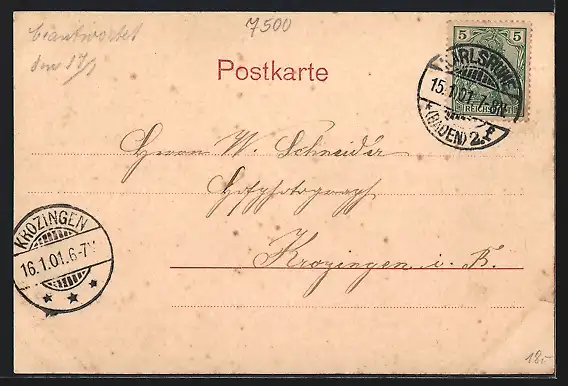 beantwortet
den 17/1
7500
Postkarte
5 5
REICHSPOST
KARLSRUHE
15.1.01.7-8N
*(BADEN) 2.
Herrn W. Schneider
Hofphotograph
Krozingen i. B.
KROZINGEN
16.1.01.6-7V
18.-